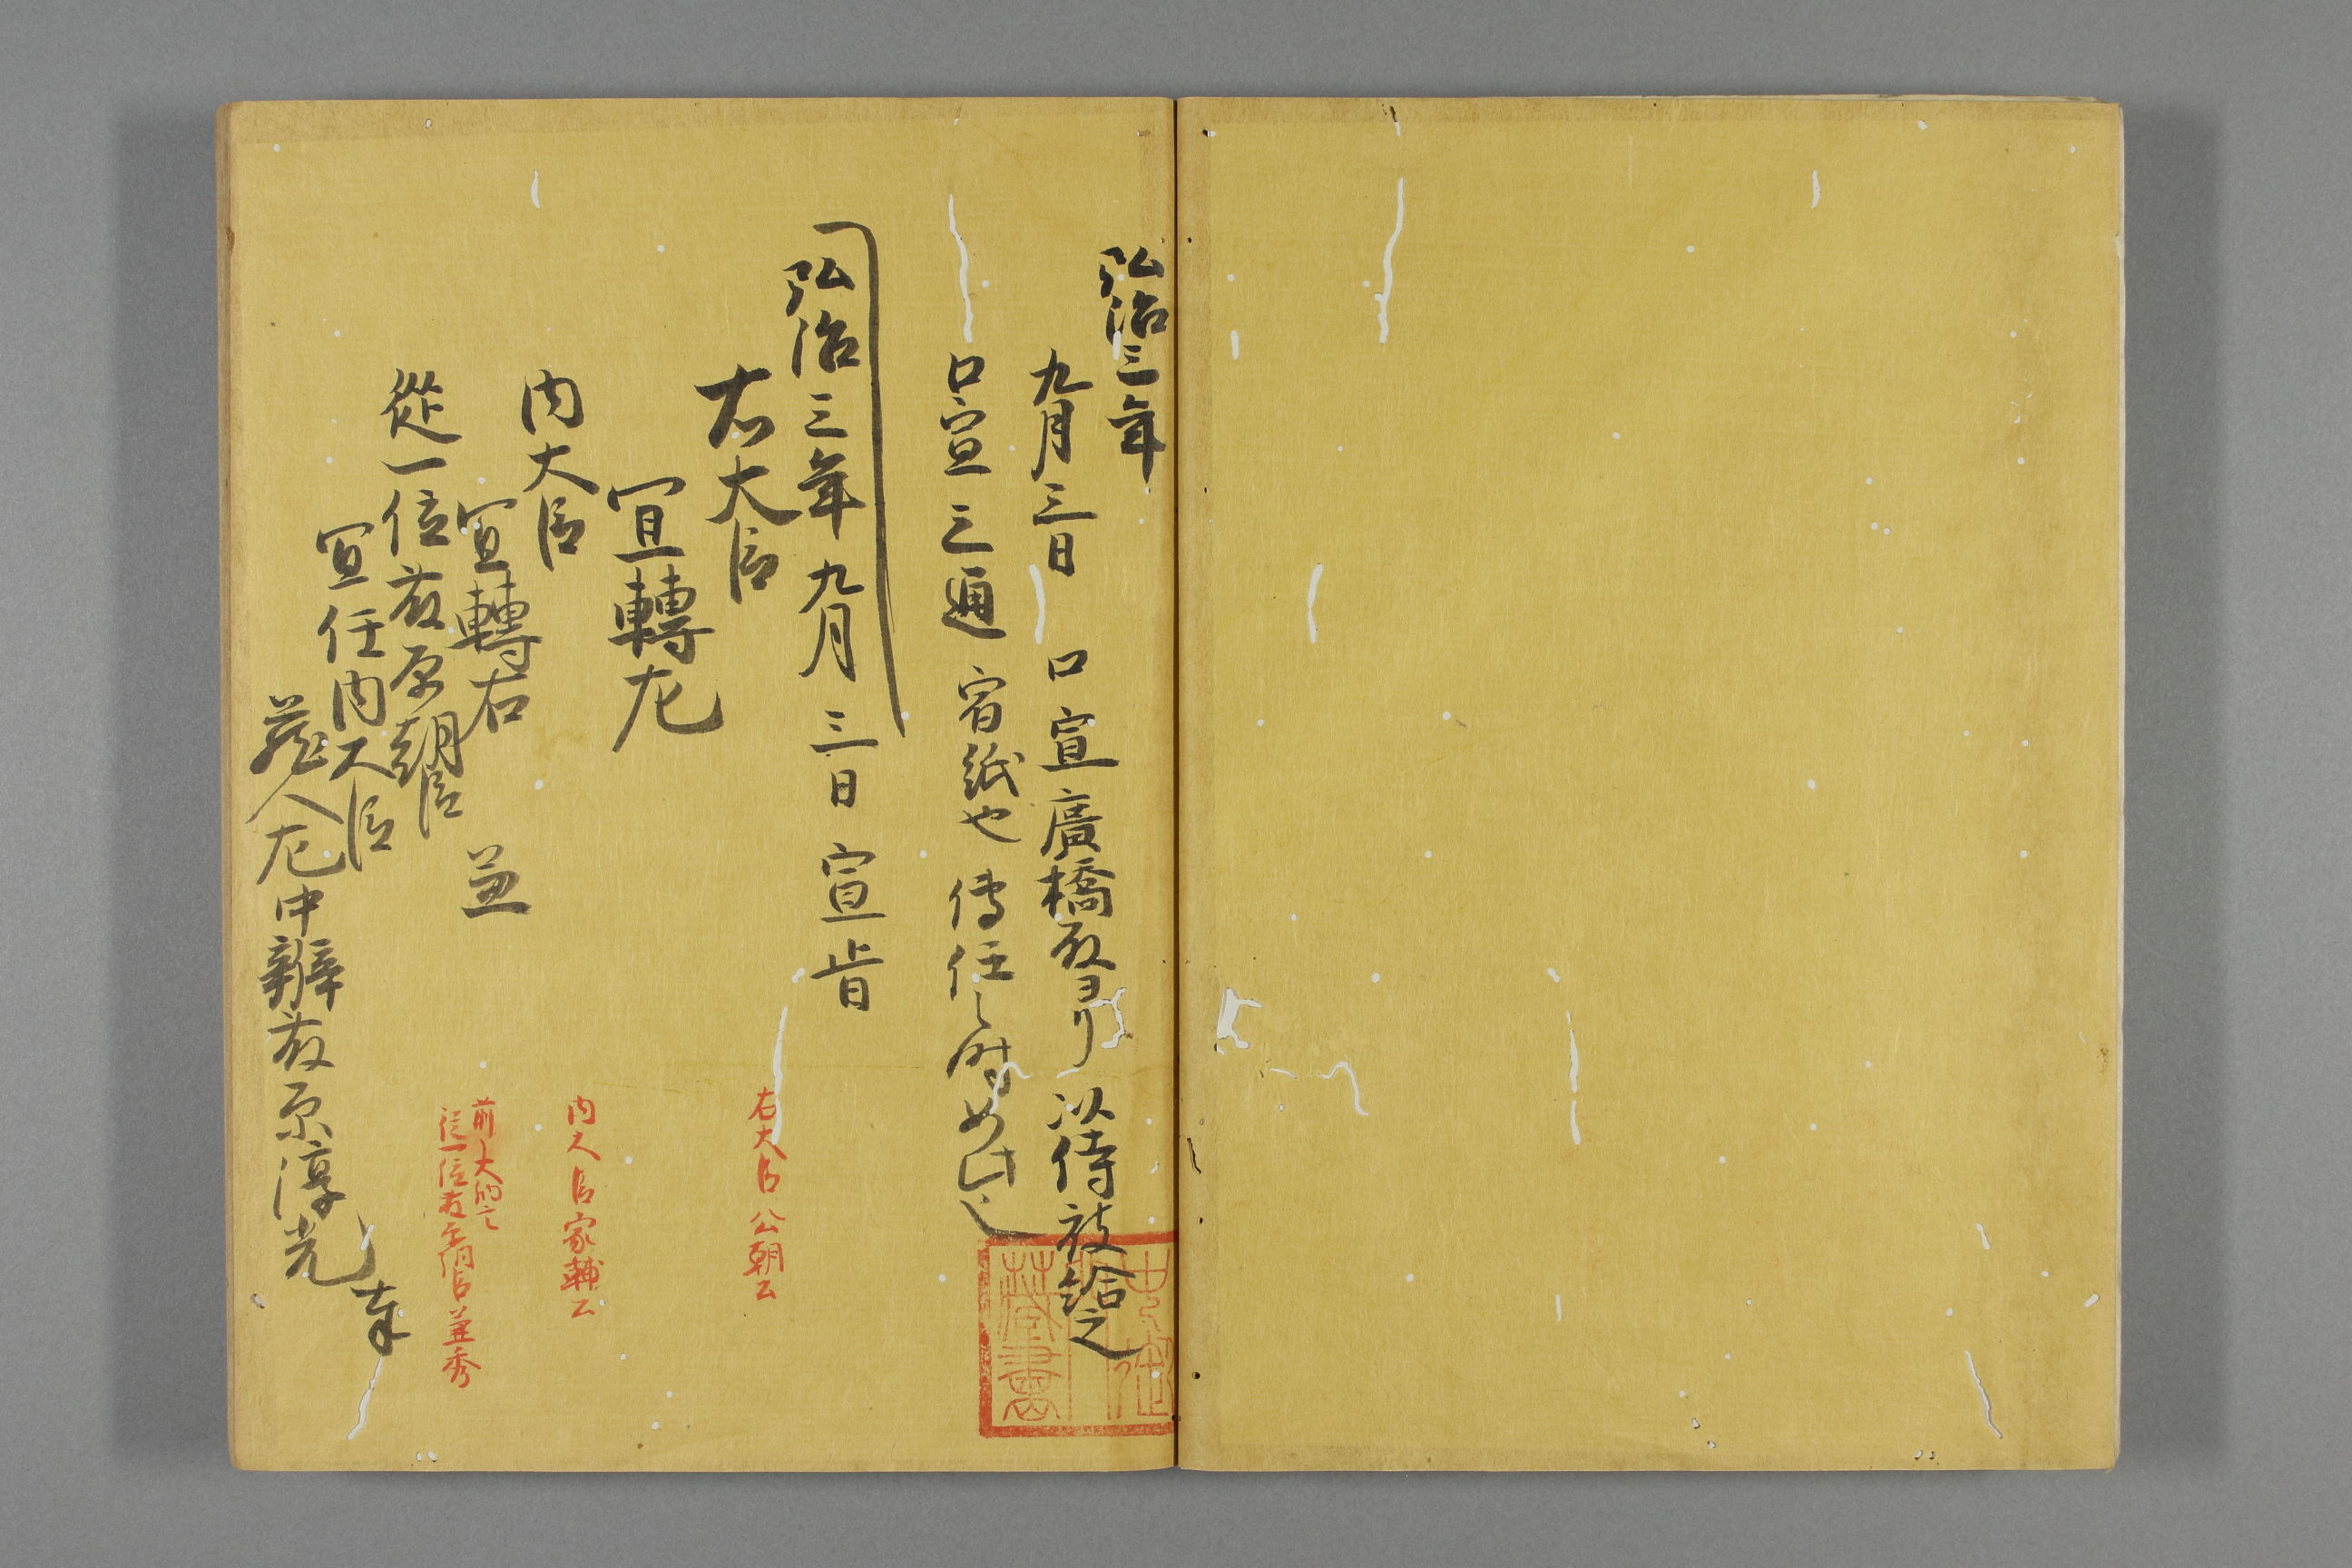 弘治三年
九月三日 口宣廣橋殿ヨリ以侍被給之
口宣三通 宿紙也 傳任之時如此
弘治三年九月三日 宣旨
右大臣
宣轉左
内大臣
宣轉右
從一位藤原朝臣 兼
宣任内大臣
藏人左中辨藤原淳光奉
右大臣公朝公
内大臣家輔公
前大納言
従一位藤原朝臣兼秀
藏書